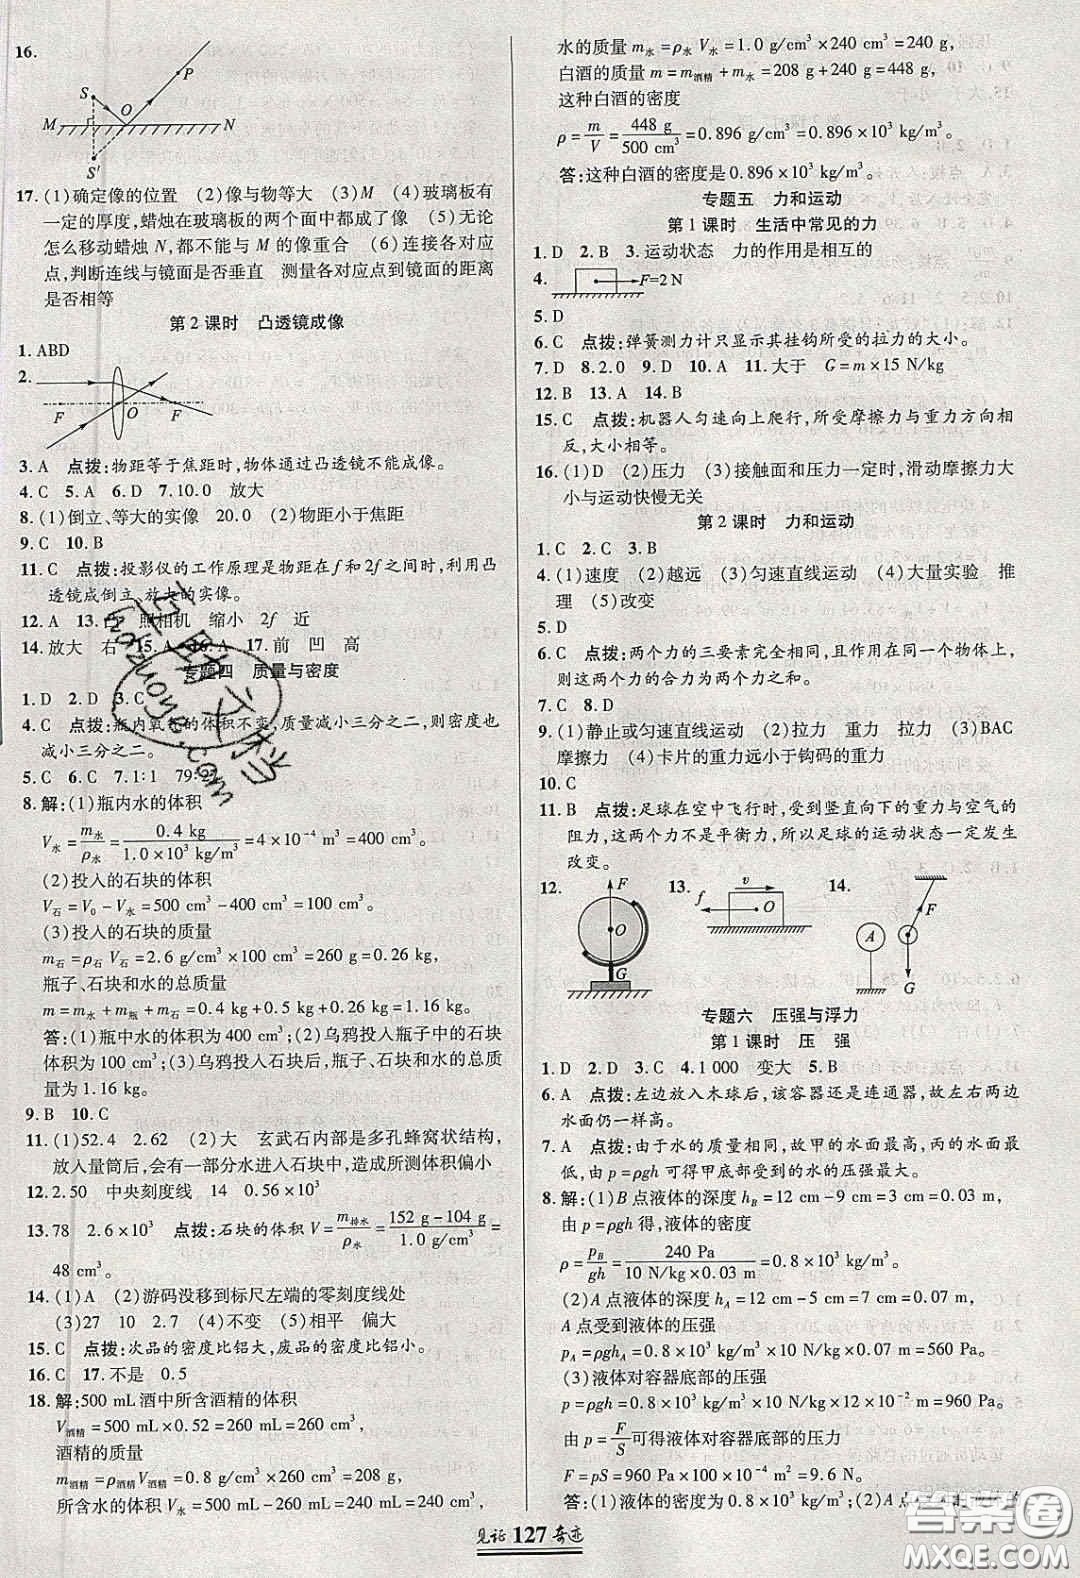 16.
P
S
O
M
N
S′
17. (1)确定像的位置 (2)像与物等大 (3)M (4)玻璃板有
一定的厚度,蜡烛在玻璃板的两个面中都成了像 (5)无论
怎么移动蜡烛 N,都不能与 M 的像重合 (6)连接各对应
点,判断连线与镜面是否垂直 测量各对应点到镜面的距离
是否相等
第 2 课时 凸透镜成像
1. ABD
2.
F
O
F
3. A 点拨:物距等于焦距时,物体通过凸透镜不能成像。
4. C 5. A 6. D 7. 10.0 放大
8. (1)倒立、等大的实像 20.0 (2)物距小于焦距
9. C 10. B
11. C 点拨:投影仪的工作原理是物距在 f 和 2f 之间时,利用凸
透镜成倒立、放大的实像。
12. A 13. 凸 照相机 缩小 2f 近
14. 放大 右 15. A 16. A 17. 前 凹 高
专题四 质量与密度
1. D 2. D 3. C
4. C 点拨:瓶内氧气的体积不变,质量减小三分之二,则密度也
减小三分之二。
5. C 6. C 7. 1∶1 79∶27
8. 解:(1)瓶内水的体积
V水=m水/ρ水=0.4 kg/(1.0×10³ kg/m³)=4×10⁻⁴ m³=400 cm³。
(2)投入的石块的体积
V石=V₀-V水=500 cm³-400 cm³=100 cm³。
(3)投入的石块的质量
m石=ρ石 V石=2.6 g/cm³×100 cm³=260 g=0.26 kg,
瓶子、石块和水的总质量
m=m水+m瓶+m石=0.4 kg+0.5 kg+0.26 kg=1.16 kg。
答:(1)瓶中水的体积为 400 cm³;(2)乌鸦投入瓶子中的石块
体积为 100 cm³;(3)乌鸦投入石块后,瓶子、石块和水的总质
量为 1.16 kg。
9. B 10. C
11. (1)52.4 2.62 (2)大 玄武石内部是多孔蜂窝状结构,
放入量筒后,会有一部分水进入石块中,造成所测体积偏小
12. 2.50 中央刻度线 14 0.56×10³
13. 78 2.6×10³ 点拨:石块的体积 V=m排水/ρ水=(152 g-104 g)/(1.0 g/cm³)=
48 cm³。
14. (1)A (2)游码没移到标尺左端的零刻度线处
(3)27 10 2.7 (4)不变 (5)相平 偏大
15. C 点拨:次品的密度比铝大,废品的密度比铝小。
16. C 17. 不是 0.5
18. 解:500 mL 酒中所含酒精的体积
V酒精=500 mL×0.52=260 mL=260 cm³
酒精的质量
m酒精=ρ酒精V酒精=0.8 g/cm³×260 cm³=208 g,
所含水的体积 V水=500 mL-260 mL=240 mL=240 cm³,
水的质量 m水=ρ水 V水=1.0 g/cm³×240 cm³=240 g,
白酒的质量 m=m酒精+m水=208 g+240 g=448 g,
这种白酒的密度
ρ=m/V=448 g/500 cm³=0.896 g/cm³=0.896×10³ kg/m³。
答:这种白酒的密度是 0.896×10³ kg/m³。
专题五 力和运动
第 1 课时 生活中常见的力
1. D 2. B 3. 运动状态 力的作用是相互的
4.
F=2 N
5. D
6. C 点拨:弹簧测力计只显示其挂钩所受的拉力的大小。
7. D 8. 2.0 9. D 10. A 11. 大于 G=m×15 N/kg
12. B 13. A 14. B
15. C 点拨:机器人匀速向上爬行,所受摩擦力与重力方向相
反,大小相等。
16. (1)D (2)压力 (3)接触面和压力一定时,滑动摩擦力大
小与运动快慢无关
第 2 课时 力和运动
1. C 2. C 3. B
4. (1)速度 (2)越远 (3)匀速直线运动 (4)大量实验 推
理 (5)改变
5. D
6. C 点拨:两个力的三要素完全相同,且作用在同一个物体上,
则这两个力的合力为两个力之和。
7. C 8. D
9. (1)静止或匀速直线运动 (2)拉力 重力 拉力 (3)BAC
摩擦力 (4)卡片的重力远小于钩码的重力
10. C
11. B 点拨:足球在空中飞行时,受到竖直向下的重力与空气的
阻力,这两个力不是平衡力,所以足球的运动状态一定发生
改变。
12.
F
O
G
13.
v
f
O
14.
F
A
G
专题六 压强与浮力
第 1 课时 压 强
1. D 2. D 3. C 4. 1 000 变大 5. B
6. A 点拨:左边放入木球后,该容器还是连通器,故左右两边
水面仍一样高。
7. A 点拨:由于水的质量相同,故甲的水面最高,丙的水面最
低,由 p=ρgh 可得甲底部受到的水的压强最大。
8. 解:(1)B 点液体的深度 hB=12 cm-9 cm=3 cm=0.03 m,
由 p=ρgh 得,液体的密度
ρ=pB/gh=240 Pa/(10 N/kg×0.03 m)=0.8×10³ kg/m³。
(2)A 点液体的深度 hA=12 cm-5 cm=7 cm=0.07 m,
A 点受到液体的压强
pA=ρghA=0.8×10³ kg/m³×10 N/kg×0.07 m=560 Pa。
(3)液体对容器底部的压强
p=ρgh=0.8×10³ kg/m³×10 N/kg×12×10⁻² m=960 Pa,
由 p=F/S可得液体对容器底部的压力
F=pS=960 Pa×100×10⁻⁴ m²=9.6 N。
答:(1)液体的密度为 0.8×10³ kg/m³;(2)A 点
见证 127 奇迹
作业帮文档
zuoyebang.com
答案圈
MXQE.COM